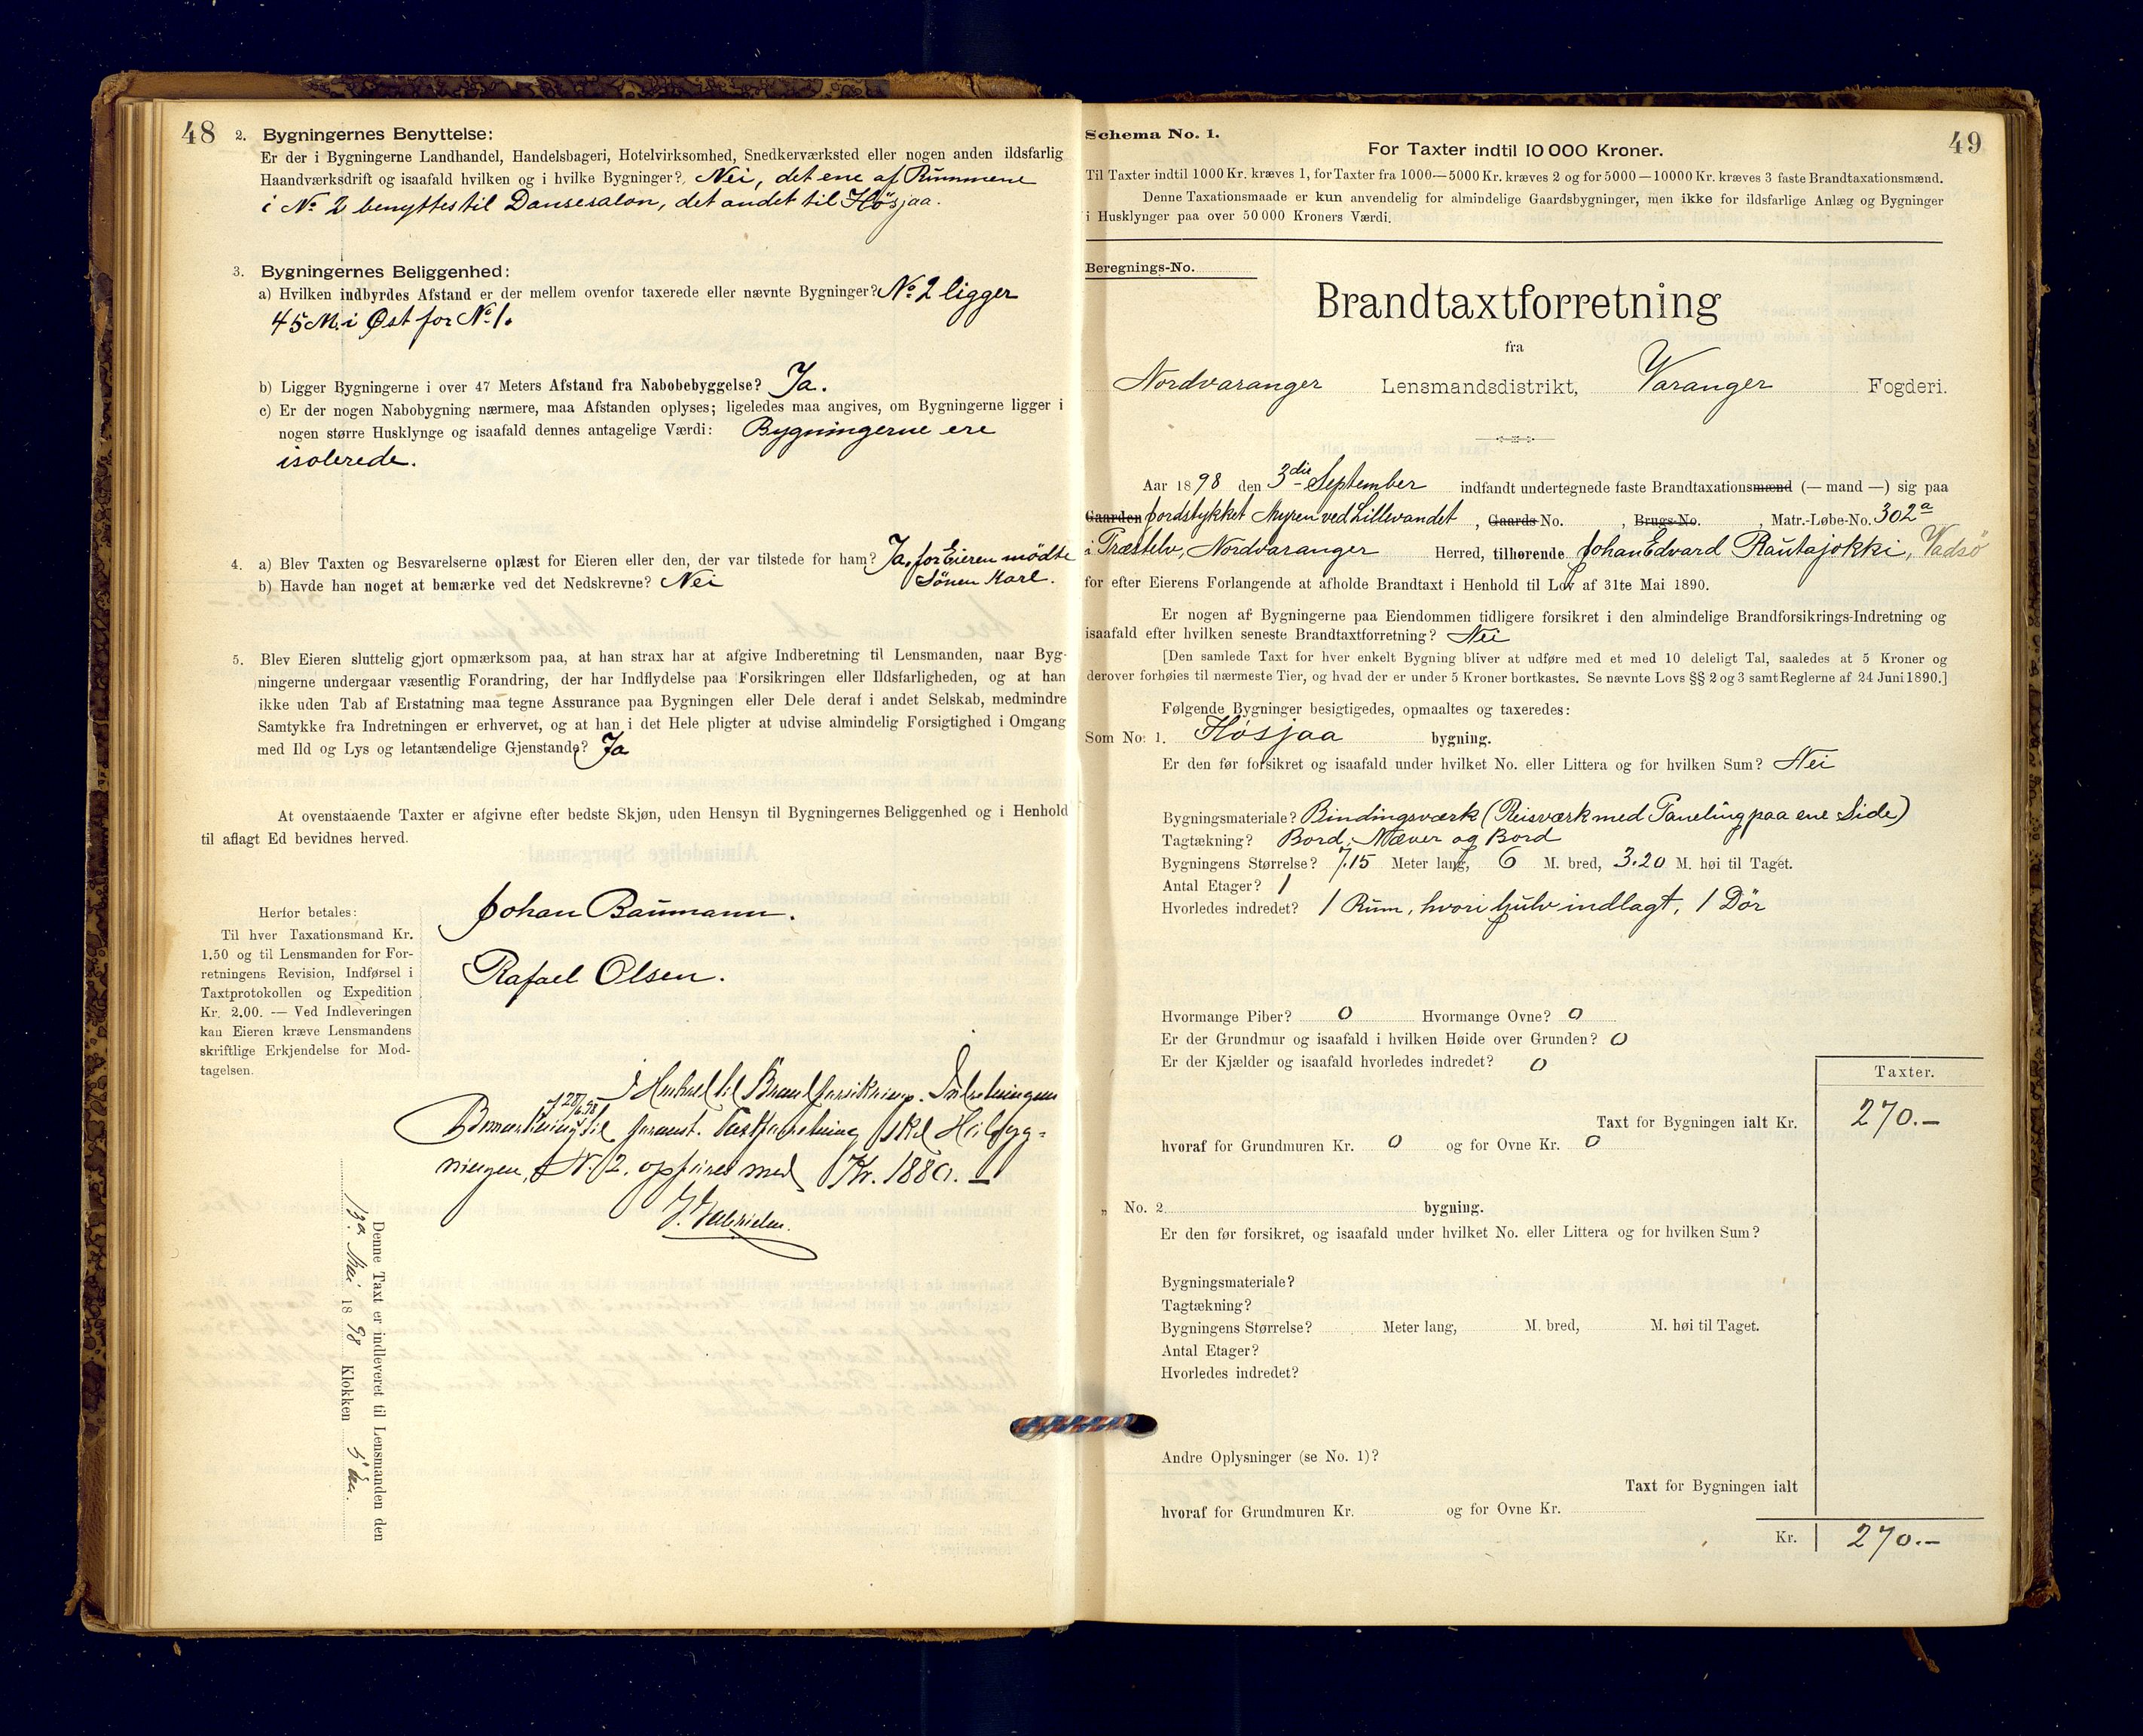 48
2. Bygningernes Benyttelse:
Er der i Bygningerne Landhandel, Handelsbageri, Hotelvirksomhed, Snedkerværksted eller nogen anden ildsfarlig
Haandværksdrift og isaafald hvilken og i hvilke Bygninger? Nei, det ene af Rummene
i No 2 benyttes til Dansesalon, det andet til Høsjaa.
3. Bygningernes Beliggenhed:
a) Hvilken indbyrdes Afstand er der mellem ovenfor taxerede eller nævnte Bygninger? No 2 ligger
45 M. i Øst for No 1.
b) Ligger Bygningerne i over 47 Meters Afstand fra Nabobebyggelse? Ja.
c) Er der nogen Nabobygning nærmere, maa Afstanden oplyses; ligeledes maa angives, om Bygningerne ligger i
nogen større Husklynge og isaafald dennes antagelige Værdi: Bygningerne ere
isolerede.
4. a) Blev Taxten og Besvarelserne oplæst for Eieren eller den, der var tilstede for ham? Ja, for Eieren mödte
Sönen Karl.
b) Havde han noget at bemærke ved det Nedskrevne? Nei
5. Blev Eieren sluttelig gjort opmærksom paa, at han strax har at afgive Indberetning til Lensmanden, naar Byg-
ningerne undergaar væsentlig Forandring, der har Indflydelse paa Forsikringen eller Ildsfarligheden, og at han
ikke uden Tab af Erstatning maa tegne Assurance paa Bygningen eller Dele deraf i andet Selskab, medmindre
Samtykke fra Indretningen er erhvervet, og at han i det Hele pligter at udvise almindelig Forsigtighed i Omgang
med Ild og Lys og letantændelige Gjenstande? Ja
At ovenstaaende Taxter er afgivne efter bedste Skjøn, uden Hensyn til Bygningernes Beliggenhed og i Henhold
til aflagt Ed bevidnes herved.
Johan Baumann.
Rafael Olsen.
Herfor betales:
Til hver Taxationsmand Kr.
1.50 og til Lensmanden for For-
retningens Revision, Indførsel i
Taxtprotokollen og Expedition
Kr. 2.00. — Ved Indleveringen
kan Eieren kræve Lensmandens
skriftlige Erkjendelse for Mod-
tagelsen.
I Henhold til Brandforsikrings-Indretningens
Bemærkning af 28/6 98 til foranst. Taxtforretning skal
ningen, No 2. opføres med Kr. 1880.—
Denne Taxt er indleveret til Lensmanden den
Mai 1898 Klokken
49
Schema No. 1.
For Taxter indtil 10 000 Kroner.
Til Taxter indtil 1000 Kr. kræves 1, for Taxter fra 1000—5000 Kr. kræves 2 og for 5000—10000 Kr. kræves 3 faste Brandtaxationsmænd.
Denne Taxationsmaade er kun anvendelig for almindelige Gaardsbygninger, men ikke for ildsfarlige Anlæg og Bygninger
i Husklynger paa over 50 000 Kroners Værdi.
Beregnings-No.
Brandtaxtforretning
fra
Nordvaranger Lensmandsdistrikt, Varanger Fogderi.
Aar 1898 den 3die September indfandt undertegnede faste Brandtaxationsmænd (— mand —) sig paa
Gaarden Jordstykket Myren ved Lillevandet, Gaards-No. , Brugs-No. , Matr.-Løbe-No. 302a
i Træstelv, Nordvaranger Herred, tilhørende Johan Edvard Rautajokki, Vadsö
for efter Eierens Forlangende at afholde Brandtaxt i Henhold til Lov af 31te Mai 1890.
Er nogen af Bygningerne paa Eiendommen tidligere forsikret i den almindelige Brandforsikrings-Indretning og
isaafald efter hvilken seneste Brandtaxtforretning? Nei
[Den samlede Taxt for hver enkelt Bygning bliver at udføre med et med 10 deleligt Tal, saaledes at 5 Kroner og
derover forhøies til nærmeste Tier, og hvad der er under 5 Kroner bortkastes. Se nævnte Lovs §§ 2 og 3 samt Reglerne af 24 Juni 1890.]
Følgende Bygninger besigtigedes, opmaaltes og taxeredes:
Som No: 1. Høsjaa bygning.
Er den før forsikret og isaafald under hvilket No. eller Littera og for hvilken Sum? Nei
Bygningsmateriale? Bindingsværk (Reisværk med Paneling paa ene Side)
Tagtækning? Bord, Næver og Bord
Bygningens Størrelse? 7.15 Meter lang, 6 M. bred, 3.20 M. høi til Taget.
Antal Etager? 1
Hvorledes indredet? 1 Rum, hvori Gulv indlagt, 1 Dör
Hvormange Piber? 0 Hvormange Ovne? 0
Er der Grundmur og isaafald i hvilken Høide over Grunden? 0
Er der Kjælder og isaafald hvorledes indredet? 0
Taxter.
Taxt for Bygningen ialt Kr. 270.—
hvoraf for Grundmuren Kr. 0 og for Ovne Kr. 0
„ No. 2 bygning.
Er den før forsikret, og isaafald under hvilket No. eller Littera og for hvilken Sum?
Bygningsmateriale?
Tagtækning?
Bygningens Størrelse? Meter lang, M. bred, M. høi til Taget.
Antal Etager?
Hvorledes indredet?
Andre Oplysninger (se No. 1)?
Taxt for Bygningen ialt
hvoraf for Grundmuren Kr. og for Ovne Kr.
Kr. 270.—